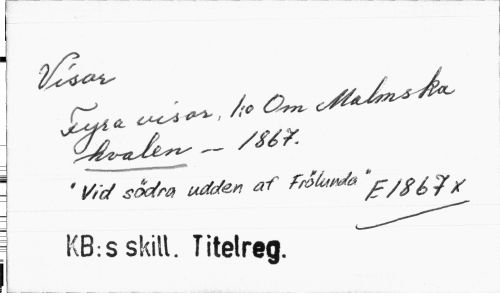 Visor
Fyra visor, 1:o Om Malmska
hvalen — 1867.
"Vid södra udden af Frölunda" E1867x
KB:s skill. Titelreg.